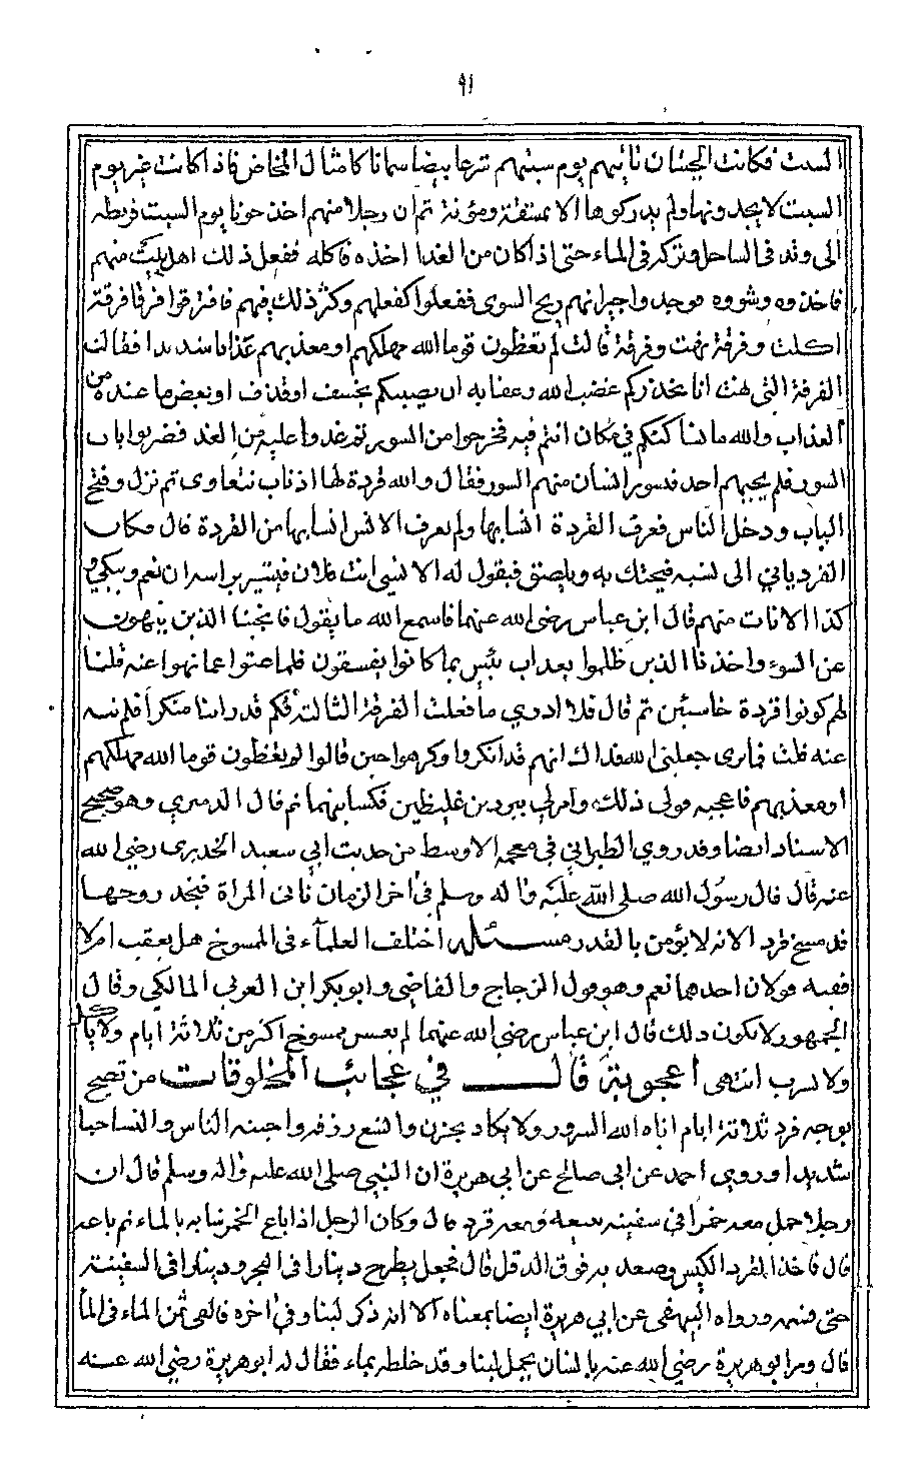 ٩١
السبت فكانت الحيتان تأتيهم يوم سبتهم شرعا بيضا سمانا كامثال المخاض فاذا كانت غير يوم
السبت لا يجدونها ولم يدركوها الا بمشقة ومؤنة ثم ان رجلا منهم اخذ حوتا يوم السبت فربطه
الى وتد في الساحل وتركه في الماء حتى اذا كان من الغد اخذه فاكله ففعل ذلك اهل بيت منهم
فاخذوه وشووه فوجد واجيرانهم ريح الشوى ففعلوا كفعلهم وكثر ذلك فيهم فافترقوا فرقا فرقة
اكلت وفرقة نهت وفرقة قالت لم تعظون قوما الله مهلكهم او معذبهم عذابا شديدا فقالت
الفرقة التي نهت انا نحذركم غضب الله وعقابه ان يصيبكم بخسف او قذف او ببعض ما عنده من
العذاب والله ما نساكنكم في مكان انتم فيه فخرجوا من السور ثم غدوا عليه من الغد فضربوا باب
السور فلم يجبهم احد فتسور انسان منهم السور فقال والله قردة لها اذناب تتعاوى ثم نزل وفتح
الباب ودخل الناس فعرفت القردة انسابها ولم يعرف الانس انسابها من القردة قال فكان
القرد ياتي الى نسبه فيحتك به ويلصق فيقول له الانسي انت فلان فيشير براسه ان نعم ويبكي و
كذا الاناث منهم قال ابن عباس رضي الله عنهما فاسمع الله ما يقول فانجينا الذين ينهون
عن السوء واخذنا الذين ظلموا بعذاب بئس بما كانوا يفسقون فلما عتوا عما نهوا عنه قلنا
لهم كونوا قردة خاسئين ثم قال فلا ادري ما فعلت الفرقة الثالثة فكم قد راينا منكرا فلم ننه
عنه قلت فما ترى جعلني الله فداك انهم قد انكروا وكرهوا حين قالوا لم تعظون قوما الله مهلكهم
او معذبهم فاعجبه قولي ذلك وامر لي ببردين غليظين فكسانيهما ثم قال الدميري وهو صحيح
الاسناد ايضا وقد روى الطبراني في معجمه الاوسط من حديث ابي سعيد الخدري رضي الله
عنه قال قال رسول الله صلى الله عليه واله وسلم في اخر الزمان تاتى المراة فتجد زوجها
قد مسخ قردا لانه لا يؤمن بالقدر مسئله اختلف العلماء في المسوخ هل يعقب ام لا
ففيه قولان احدهما نعم وهو قول الزجاج والقاضي وابو بكر ابن العربي المالكي وقال
الجمهور لا يكون ذلك قال ابن عباس رضي الله عنهما لم يعش ممسوخ اكثر من ثلاثة ايام ولا ياكل
ولا يشرب انتهى اعجوبة قال في عجائب المخلوقات من تصبح
بوجه قرد ثلاثة ايام اتاه الله السرور ولا يكاد يحزن واتسع رزقه واحبته الناس والنساء حبا
شديدا وروى احمد عن ابى صالح عن ابي هريرة ان النبي صلى الله عليه واله وسلم قال ان
رجلا حمل معه خمرا في سفينة يبيعه ومعه قرد قال وكان الرجل اذا باع الخمر شابه بالماء ثم باعه
قال فاخذ القرد الكيس وصعد به فوق الدقل قال فجعل يطرح دينارا في البحر ودينارا في السفينة
حتى قسمه ورواه البيهقي عن ابي هريرة ايضا بمعناه الا انه ذكر لبنا وفي اخره فالقى ثمن الماء في الماء
قال ومر ابو هريرة رضي الله عنه بانسان يحمل لبنا وقد خلطه بماء فقال له ابو هريرة رضي الله عنه